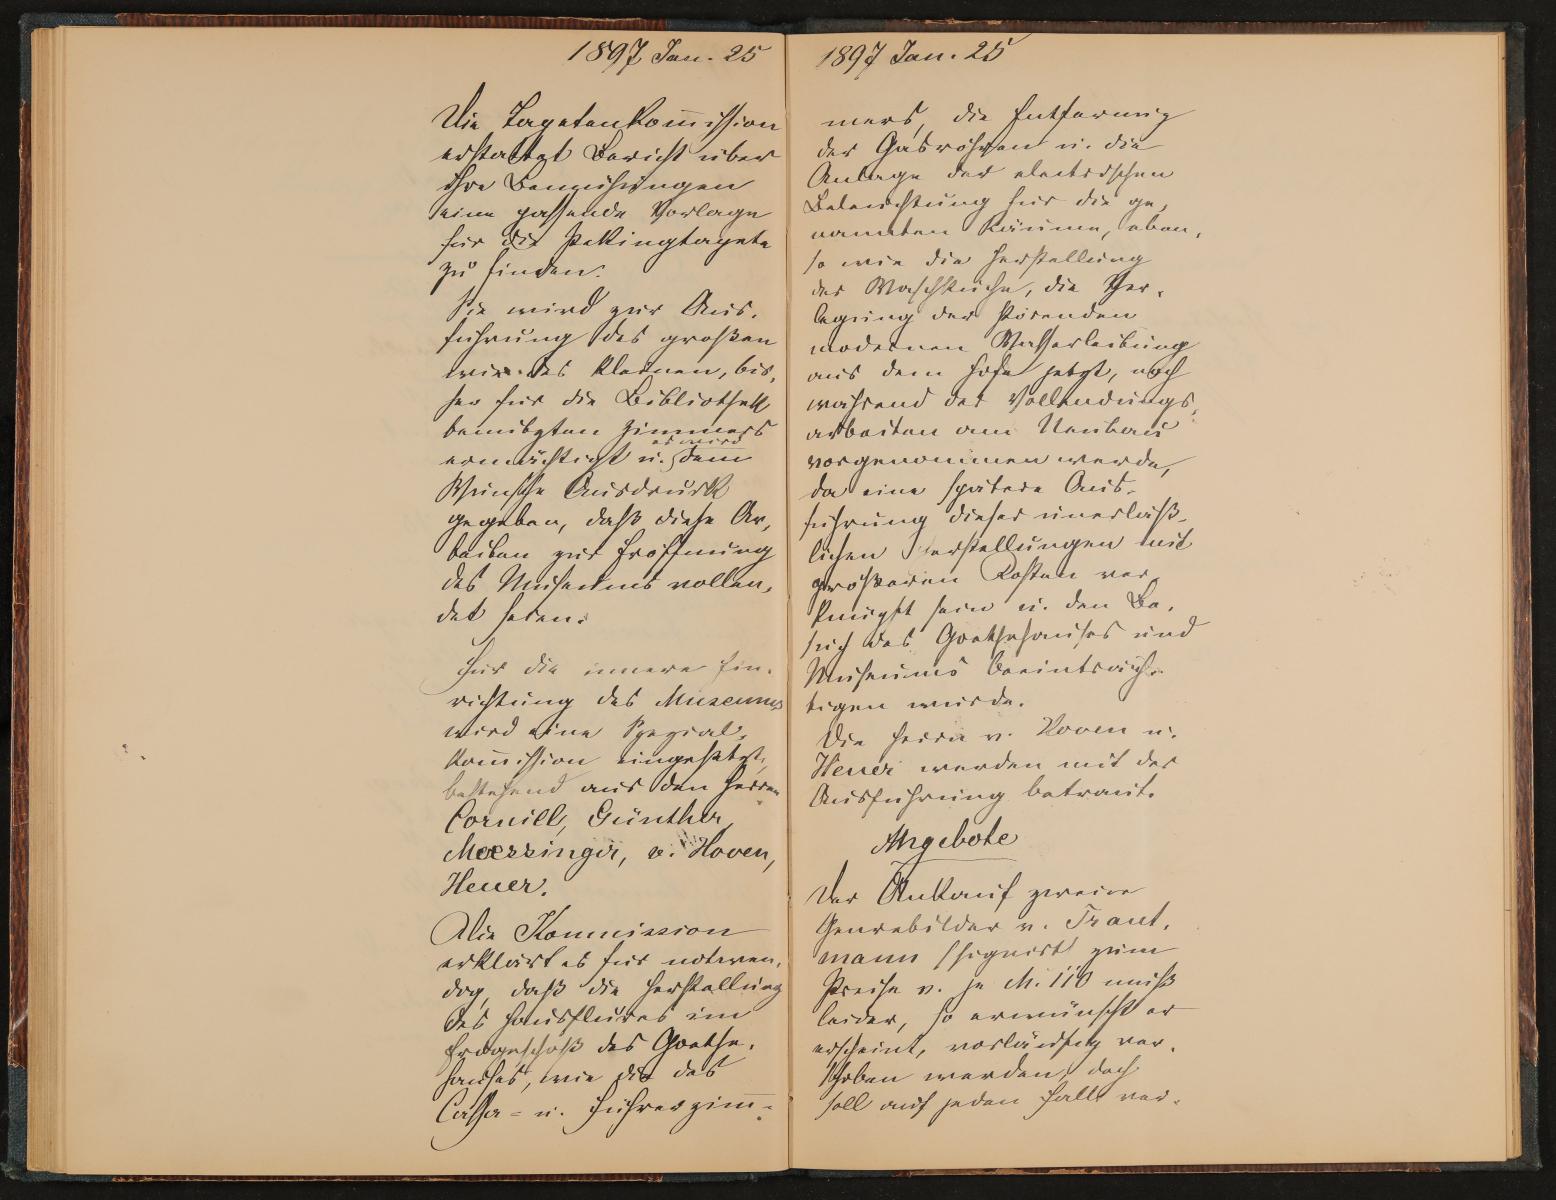 1897 Jan. 25
Die Tapetenkommission
erstattet Bericht über
ihre Bemühungen
eine passende Vorlage
für die Pekingtapete
zu finden.
Sie wird zur Aus-
führung des großen
wie des kleinen, bis-
her für die Bibliothek
benützten Zimmers
es wird
ermächtigt u. dem
Wunsche Ausdruck
gegeben, daß diese Ar-
beiten zur Eröffnung
des Museums vollen-
det seien.
Für die innere Ein-
richtung des Museums
wird eine Spezial-
kommission eingesetzt,
bestehend aus den Herren
Cornill, Günther,
Moessinger, v. Hoven,
Heuer.
Die Kommission
erklärt es für notwen-
dig, daß die Herstellung
des Hausflures im
Erdgeschoß des Goethe-
hauses, wie die des
Cassa- u. Führerzim-
1897 Jan. 25
mers, die Entfernung
der Gasröhren u. die
Anlage der electrischen
Beleuchtung für die ge-
nannten Räume, eben-
so wie die Herstellung
der Waschküche, die Ver-
legung der störenden
modernen Wasserleitung
aus dem Hofe jetzt, noch
während der Vollendungs-
arbeiten am Neubau
vorgenommen werde,
da eine spätere Aus-
führung dieser unerläß-
lichen Herstellungen mit
größeren Kosten ver-
knüpft sein u. den Be-
such des Goethehauses und
Museums beeinträch-
tigen würde.
Die Herrn v. Hoven u.
Heuer werden mit der
Ausführung betraut.
Angebote
Der Ankauf zweier
Genrebilder v. Traut-
mann (signirt) zum
Preise v. je M. 110 muß
leider, so erwünscht er
erscheint, vorläufig ver-
schoben werden, doch
soll auf jeden Fall ver-